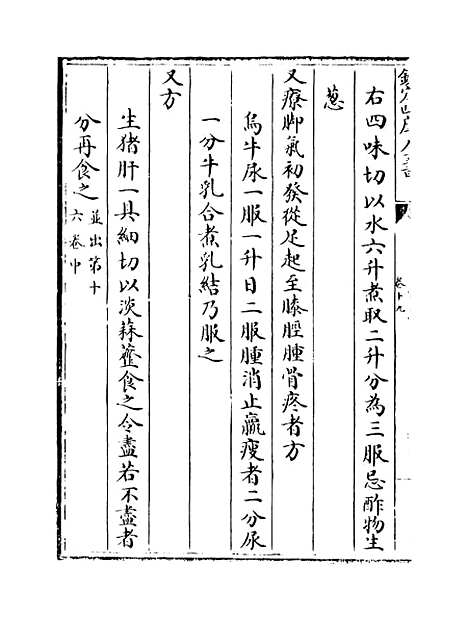 欽定四庫全書
卷十九
右四味切以水六升煮取二升分為三服忌酢物生
葱
又療脚氣初發從足起至膝脛腫骨疼者方
烏牛尿一服一升日二服腫消止羸瘦者二分尿
一分牛乳合煮乳結乃服之
又方
生猪肝一具細切以淡蒜虀食之令盡若不盡者
分再食之並出第十六卷中